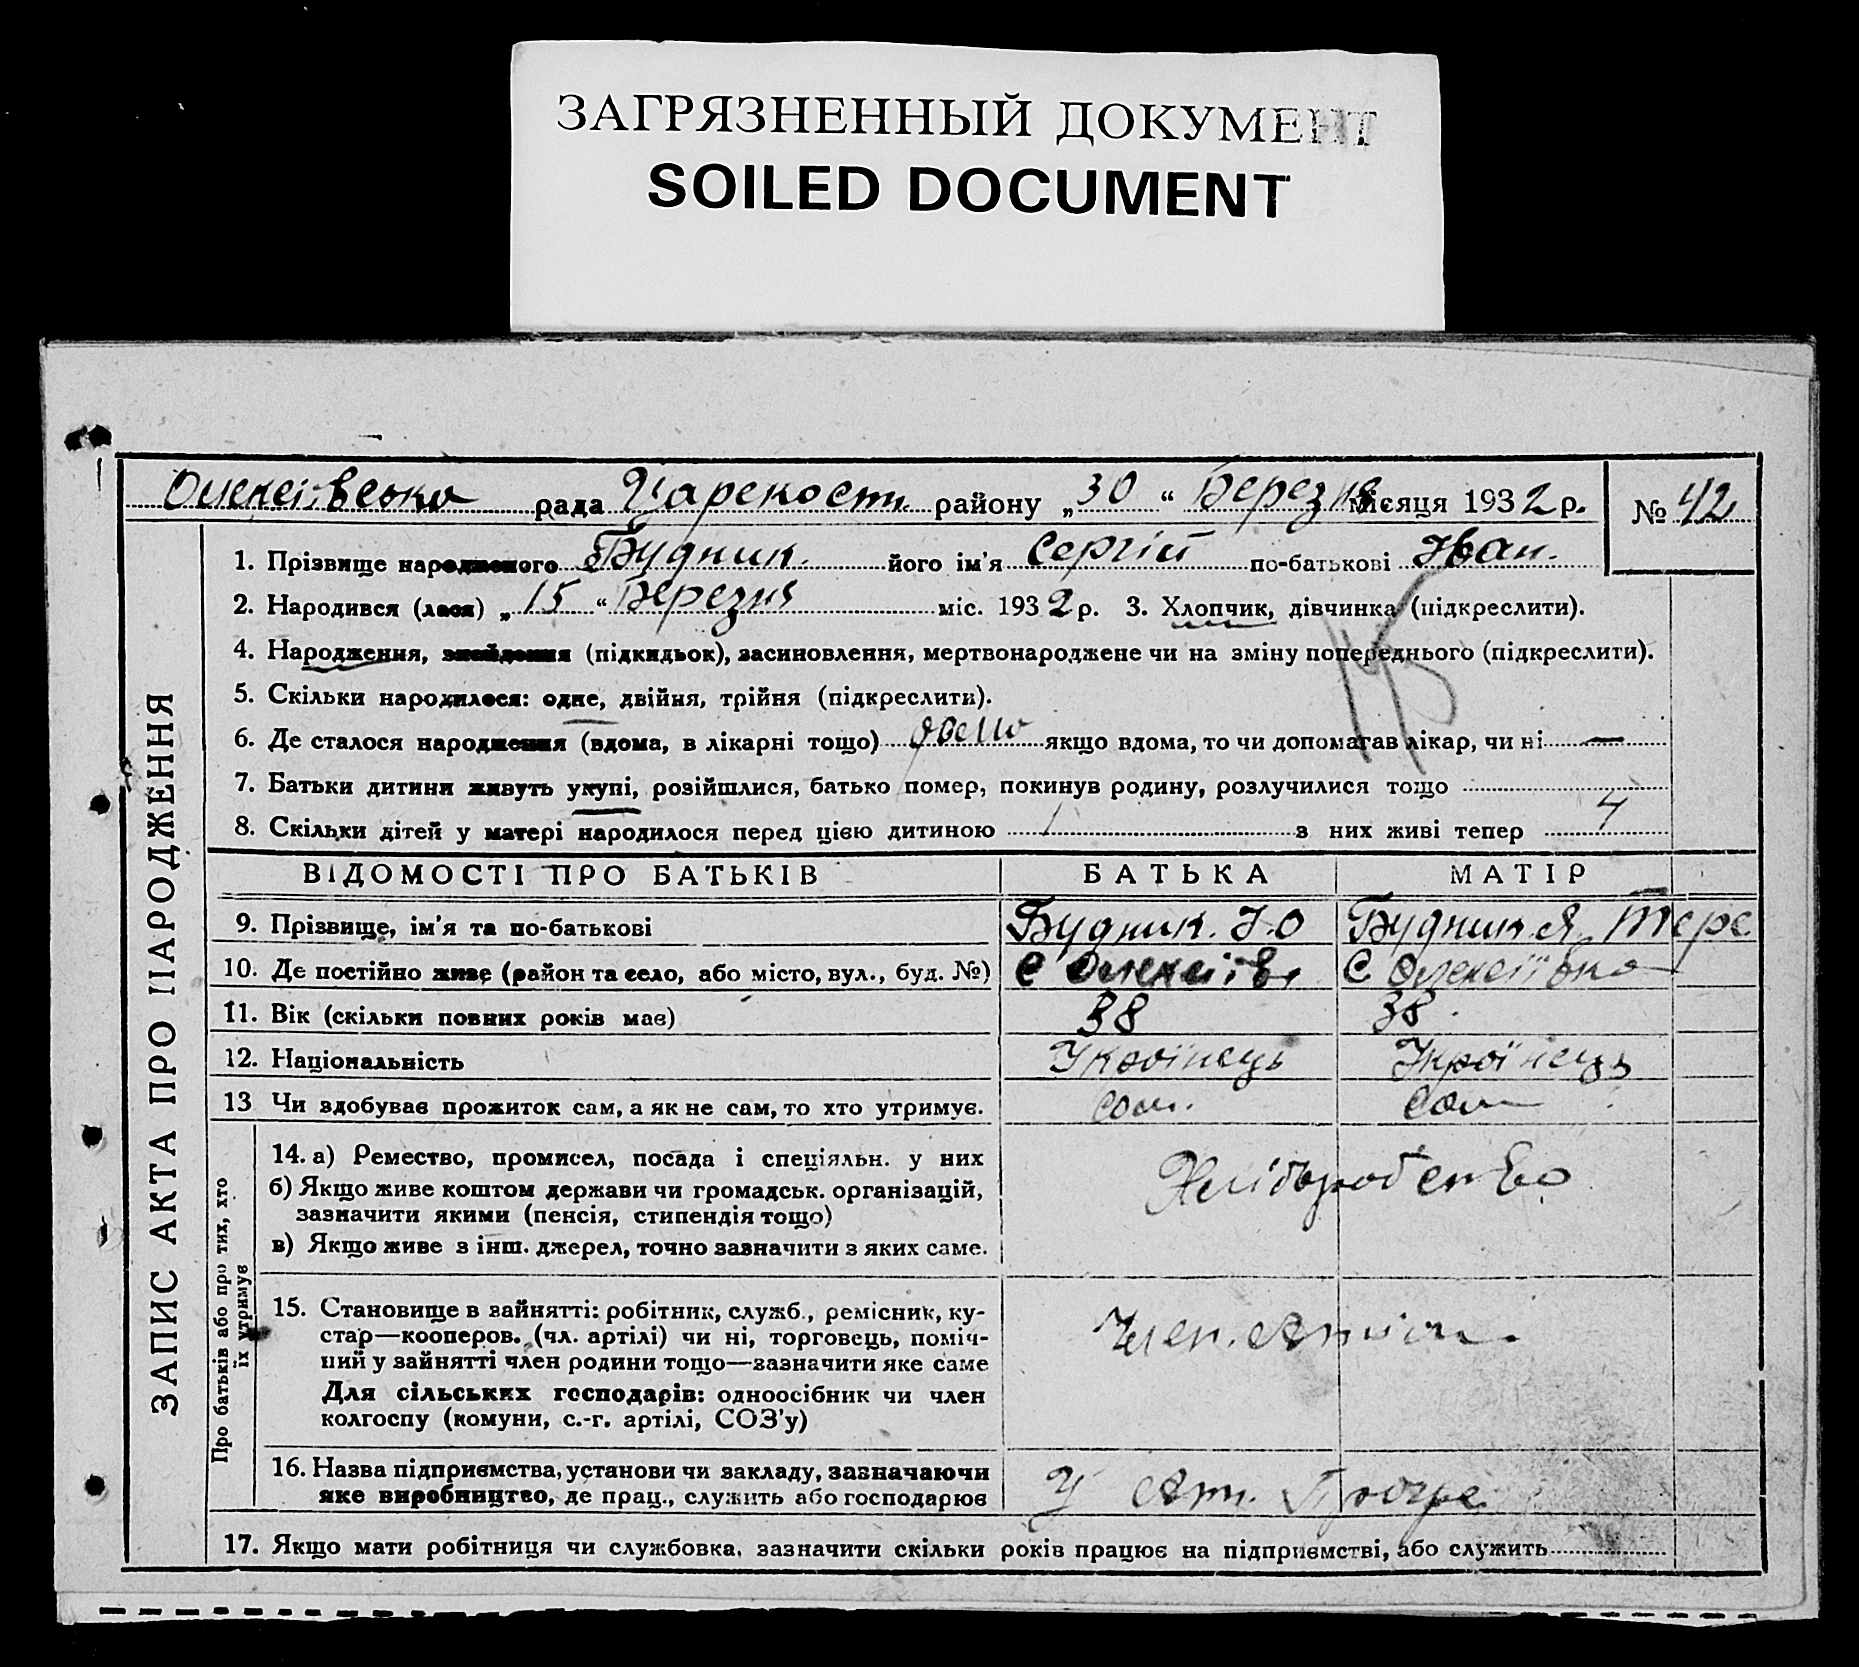 ЗАГРЯЗНЕННЫЙ ДОКУМЕНТ
SOILED DOCUMENT
Олексіївська рада Царекост. району „30“ Березня місяця 1932 р. № 42
ЗАПИС АКТА ПРО НАРОДЖЕННЯ
1. Прізвище народженого Будник. його ім'я Сергій по-батькові Іван.
2. Народився (лася) „15“ Березня міс. 1932 р. 3. Хлопчик, дівчинка (підкреслити).
4. Народження, знайдення (підкидьок), засиновлення, мертвонароджене чи на зміну попереднього (підкреслити).
5. Скільки народилося: одне, двійня, трійня (підкреслити).
6. Де сталося народження (вдома, в лікарні тощо) якщо вдома, то чи допомагав лікар, чи ні —
7. Батьки дитини живуть укупі, розійшлися, батько помер, покинув родину, розлучилися тощо
8. Скільки дітей у матері народилося перед цією дитиною 1 з них живі тепер 4
ВІДОМОСТІ ПРО БАТЬКІВ БАТЬКА МАТІР
9. Прізвище, ім'я та по-батькові Будник. І. О Будник. Я. Тере
10. Де постійно живе (район та село, або місто, вул., буд. №) С Олексіїв С Олексіївка
11. Вік (скільки повних років має) 38 38
12. Національність Українець Українець
13 Чи здобуває прожиток сам, а як не сам, то хто утримує. сам. сам
Про батьків або про тих, хто
їх утримує
14. а) Ремество, промисел, посада і спеціяльн. у них
б) Якщо живе коштом держави чи громадськ. організацій,
зазначити якими (пенсія, стипендія тощо)
Хліборобство
в) Якщо живе з інш. джерел, точно зазначити з яких саме.
15. Становище в зайнятті: робітник, служб., ремісник, ку-
стар—кооперов. (чл. артілі) чи ні, торговець, поміч-
ний у зайнятті член родини тощо—зазначити яке саме
Член. Артілі.
Для сільських господарів: одноосібник чи член
колгоспу (комуни, с.-г. артілі, СОЗ'у)
16. Назва підприємства, установи чи закладу, зазначаючи
яке виробництво, де прац., служить або господарює У Арт.
17. Якщо мати робітниця чи службовка, зазначити скільки років працює на підприємстві, або служить